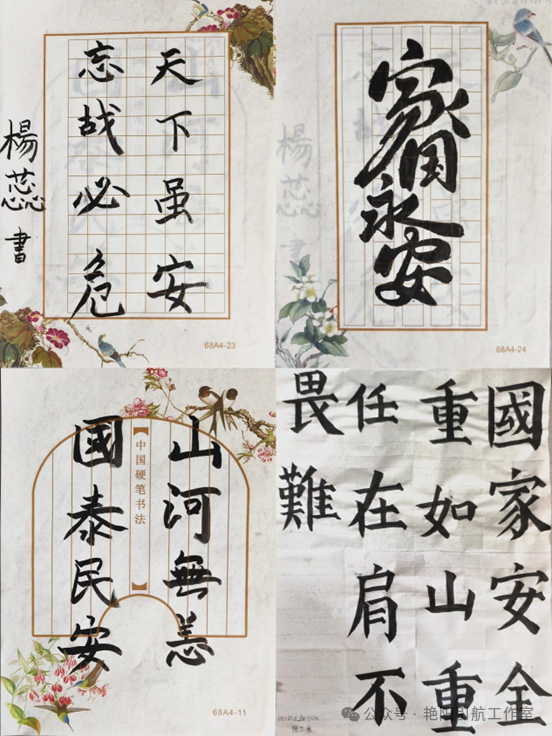 天下虽安
忘战必危
楊蕊書
68A4-23
家国永安
68A4-24
山河無恙
【中国硬笔书法】
國泰民安
68A4-11
國家安全
重如山重
任在肩不
畏難
公众号 · 艳阳引航工作室